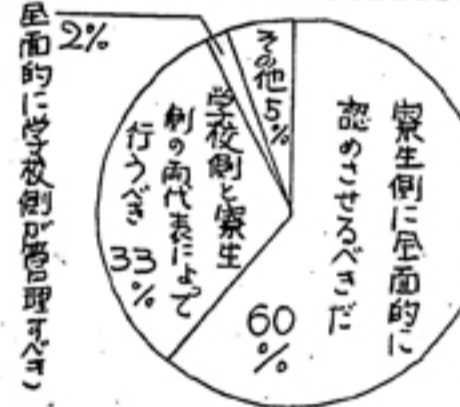 寮生側に全面的に
認めさせるべきだ
60
%
学校側と寮生
側の両代表によって
行うべき
33
%
全面的に学校側が管理すべき
2%
その他
5%